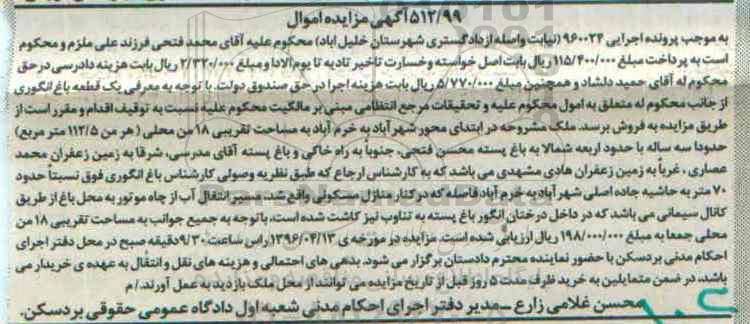 ۵۱۲/۹۹ آگهی مزایده اموال
به موجب پرونده اجرایی ۹۶۰۰۲۴ (نیابت واصله از دادگستری شهرستان خلیل اباد) محکوم علیه آقای محمد فتحی فرزند علی ملزم و محکوم
است به پرداخت مبلغ ۱۱۵/۴۰۰/۰۰۰ ریال بابت اصل خواسته و خسارت تاخیر تادیه تا یوم الادا و مبلغ ۲/۳۲۰/۰۰۰ ریال بابت هزینه دادرسی در حق
محکوم له آقای حمید دلشاد و همچنین مبلغ ۵/۷۷۰/۰۰۰ ریال بابت هزینه اجرا در حق صندوق دولت. با توجه به معرفی یک قطعه باغ انگوری
از جانب محکوم له متعلق به امول محکوم علیه و تحقیقات مرجع انتظامی مبنی بر مالکیت محکوم علیه نسبت به توقیف اقدام و مقرر است از
طریق مزایده به فروش برسد. ملک مشروحه در ابتدای محور شهر آباد به خرم آباد به مساحت تقریبی ۱۸ من محلی (هر من ۱۱۲/۵ متر مربع)
حدودا سه ساله با حدود اربعه شمالا به باغ پسته محسن فتحی، جنوباً به راه خاکی و باغ پسته آقای مدرسی، شرقا به زمین زعفران محمد
عصاری، غرباً به زمین زعفران هادی مشهدی می باشد که به کارشناس ارجاع که طبق نظریه وصولی کارشناس باغ انگوری فوق نسبتاً حدود
۷۰ متر به حاشیه جاده اصلی شهر آباد به خرم آباد فاصله که در کنار منازل مسکونی واقع شده مسیر انتقال آب از چاه موتور به محل باغ از طریق
کانال سیمانی می باشد که در داخل درختان انگور باغ پسته به تناوب نیز کاشت شده است، با توجه به جمیع جوانب به مساحت تقریبی ۱۸ من
محلی جمعا به مبلغ ۱۹۸/۰۰۰/۰۰۰ ریال ارزیابی شده است. مزایده در مورخه ی ۱۳۹۶/۰۴/۱۳ راس ساعت ۹/۳۰ دقیقه صبح در محل دفتر اجرای
احکام مدنی بردسکن با حضور نماینده محترم دادستان برگزار می شود. بدهی های احتمالی و هزینه های نقل و انتقال به عهده ی خریدار می
باشد، در ضمن متمایلین به خرید ظرف مدت ۵ روز قبل از تاریخ مزایده می توانند از محل ملک بازدید به عمل آورند. / م
محسن غلامی زارع - مدیر دفتر اجرای احکام مدنی شعبه اول دادگاه عمومی حقوقی بردسکن.